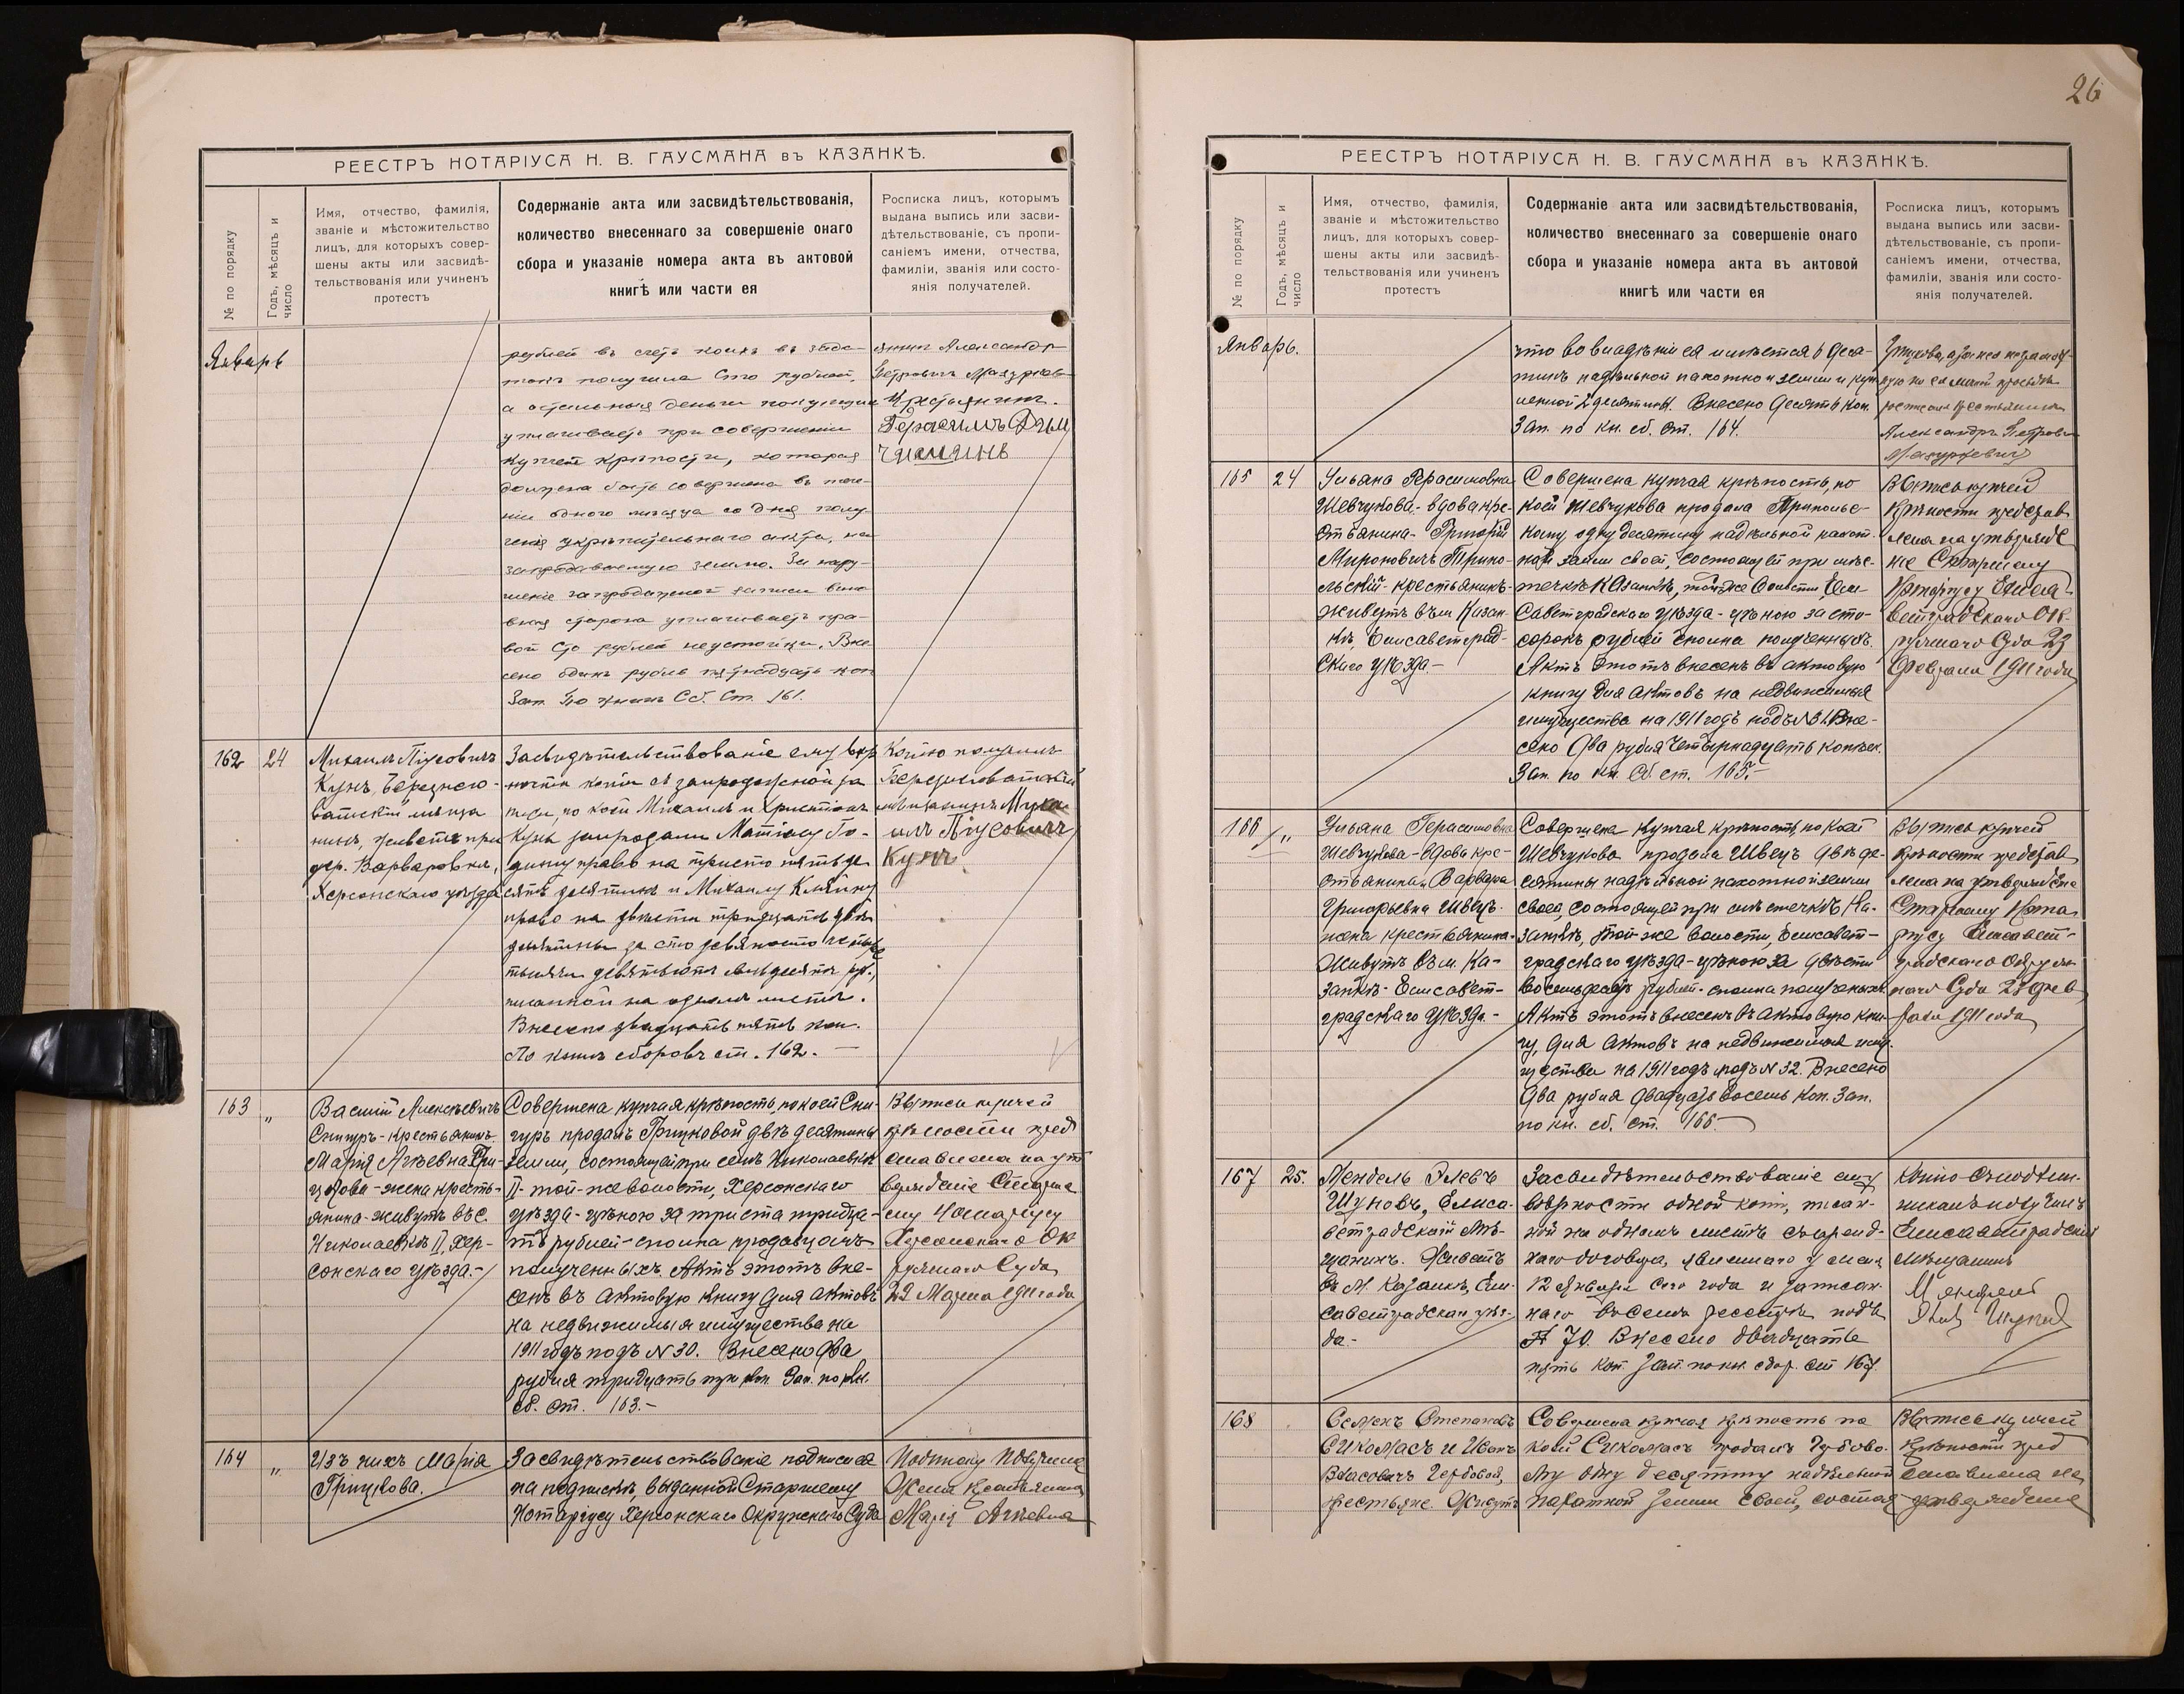 26
РЕЕСТРЪ НОТАРІУСА Н. В. ГАУСМАНА въ КАЗАНКѢ.
№ по порядку
Годъ, мѣсяцъ и
число
Имя, отчество, фамилія,
званіе и мѣстожительство
лицъ, для которыхъ совер-
шены акты или засвидѣ-
тельствованія или учиненъ
протестъ
Содержаніе акта или засвидѣтельствованія,
количество внесеннаго за совершеніе онаго
сбора и указаніе номера акта въ актовой
книгѣ или части ея
Росписка лицъ, которымъ
выдана выпись или засви-
дѣтельствованіе, съ пропи-
саніемъ имени, отчества,
фамиліи, званія или состо-
янія получателей.
Январь
рублей въ счетъ коихъ въ зада-
токъ получила сто рублей,
а остальныя деньги
уплачиваетъ при совершеніи
купчей крѣпости, которая
должна быть совершена въ тече-
ніи одного мѣсяца со дня полу-
ченія укрѣпительнаго акта, на
запродаваемую землю. За нару-
шеніе запродажной записи вино-
вная сторона уплачиваетъ пра-
вой сто рублей неустойки. Вне-
сено одинъ рубль пятнадцать коп
Зап. по книг Сб. Ст. 161.
Александръ
Петровичъ
Крестьянинъ.
Герасимъ
162
24
Михаилъ Піусовичъ
Кунъ, Березнего-
ватскій мѣща
нинъ, живетъ при
дер. Варваровкѣ,
Херсонскаго уѣзда
Засвидѣтельствованіе ему вѣр
ности копіи съ запродажной за
писи, по коей Михаилъ и Христіанъ
Кунъ запродали Матіасу
право на триста пятьде
сятъ десятинъ и Михаилу
право на двѣсти тридцать двѣ
десятины за сто девяносто четыре
тысячи девятьсотъ рб.,
писанной на одномъ листѣ.
Внесено двадцать пять коп.
По книгѣ сборовъ ст. 162. —
Копію получилъ
Березнеговатскій
мѣщанинъ Миха
илъ Піусовичъ
Кунъ
163
„
Василій Алексѣевичъ
Снигуръ - крестьянинъ.
Марія Агѣевна Гри-
цкова - жена кресть-
янина - живутъ въ с.
Николаевкѣ II, Хер-
сонскаго уѣзда. -
Совершена купчая крѣпость, по коей Сни-
гуръ продалъ Грицковой двѣ десятины
земли, состоящей при селѣ Николаевкѣ
II - той-же волости, Херсонскаго
уѣзда - цѣною за триста тридца-
ть рублей - сполна продавцомъ
полученныхъ. Актъ этотъ вне-
сенъ въ актовую книгу для актовъ
на недвижимыя имущества на
1911 годъ подъ № 30. Внесено два
рубля тридцать три коп. Зап. по кн.
сб. ст. 163. -
Выпись купчей
крѣпости пред
ставлена на ут
вержденіе Старше
му Нотаріусу
Херсонскаго Ок
ружнаго Суда
22 Марта 1911 года
164
„
Изъ нихъ Марія
Грицкова.
Засвидѣтельствованіе подписи ея
на подпискѣ, выданной Старшему
Нотаріусу Херсонскаго Окружнаго Суда
Подписку получила
Жена Крестьянина
Марія Агѣевна
РЕЕСТРЪ НОТАРІУСА Н. В. ГАУСМАНА въ КАЗАНКѢ.
№ по порядку
Годъ, мѣсяцъ и
число
Имя, отчество, фамилія,
званіе и мѣстожительство
лицъ, для которыхъ совер-
шены акты или засвидѣ-
тельствованія или учиненъ
протестъ
Содержаніе акта или засвидѣтельствованія,
количество внесеннаго за совершеніе онаго
сбора и указаніе номера акта въ актовой
книгѣ или части ея
Росписка лицъ, которымъ
выдана выпись или засви-
дѣтельствованіе, съ пропи-
саніемъ имени, отчества,
фамиліи, званія или состо-
янія получателей.
Январь.
что во владѣніи ея имѣется 6 деся-
тинъ надѣльной пахотной земли и куп-
ленной 2 десятины. Внесено десять коп.
Зап. по кн. сб. ст. 164.
Грицкова, а за нея неграмот-
ную по ея личной просьбѣ
росписался крестьянинъ
Александръ Петрович
165
24
Ульяна Герасимовна
Шевчукова - вдова кре-
стьянина - Григорій
Мироновичъ Трипо-
льскій - крестьянинъ -
живутъ въ м. Казан-
кѣ, Елисаветград-
скаго уѣзда. -
Совершена купчая крѣпость, по
коей Шевчукова продала Триполь-
скому одну десятину надѣльной пахот-
ной земли своей, состоящей при мѣс-
течкѣ Казанкѣ, той-же волости, Ели
саветградскаго уѣзда - цѣною за сто-
сорокъ рублей сполна полученныхъ.
Актъ этотъ внесенъ въ актовую
книгу для актовъ на недвижимыя
имущества на 1911 годъ подъ № 31. Вне-
сено два рубля четырнадцать копѣек.
Зап. по кн. сб. ст. 165. -
Выпись купчей
крѣпости представ
лена на утвержде
ніе Старшему
Нотаріусу Елиса-
ветградскаго Ок-
ружнаго Суда 23
Февраля 1911 года
166
„
Ульяна Герасимовна
Шевчукова - вдова кре-
стьянина, Варвара
Григорьевна Швецъ -
жена крестьянина -
живутъ въ м. Ка-
занкѣ - Елисавет-
градскаго уѣзда. -
Совершена купчая крѣпость, по коей
Шевчукова продала Швецъ двѣ де-
сятины надѣльной пахотной земли
своей, состоящей при мѣстечкѣ Ка-
занкѣ, той-же волости, Елисавет-
градскаго уѣзда - цѣною за двѣсти
восемьдесятъ рублей - сполна полученыхъ.
Актъ этотъ внесенъ въ актовую кни-
гу, для актовъ на недвижимыя иму-
щества на 1911 годъ подъ № 32. Внесено
два рубля двадцать восемь коп. Зап.
по кн. сб. ст. 166. -
Выпись купчей
крѣпости представ
лена на утвержденіе
Старшему Нота-
ріусу Елисавет-
градскаго Окруж
наго Суда 23 Фев
раля 1911 года
167
25.
Мендель Элевъ
Шуновъ, Елиса-
ветградскій мѣ-
щанинъ. Живетъ
въ м. Казанкѣ, Ели-
саветградскаго уѣз-
да. -
Засвидѣтельствованіе ему
вѣрности одной копіи, писан-
ной на одномъ листѣ съ аренд-
наго договора, явленнаго у меня
12 Января сего года и записан-
наго въ реестръ подъ
№ 70. Внесено двадцать
пять коп. Зап. по кн. сбор. ст. 167.
Копію съ подлин-
никомъ получилъ
Елисаветградскій
мѣщанинъ
Мендель
168
Семенъ Степановъ
Сикомасъ и Иванъ
Власовичъ Чербовой,
крестьяне. Живутъ
Совершена купчая крѣпость по
коей Сикомасъ продалъ Чербово-
му одну десятину надѣльной
пахатной земли своей, состоя
Выпись купчей
крѣпости пред
ставлена на
утвержденіе